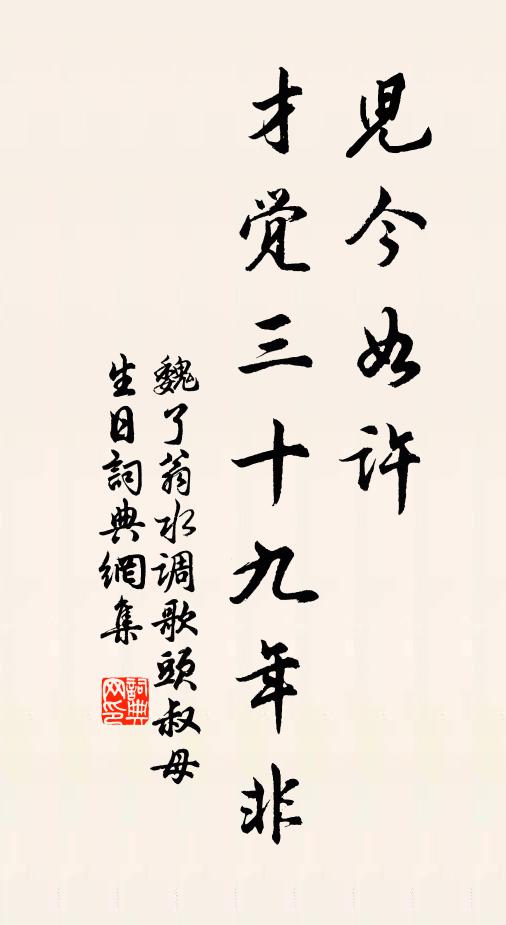 児今如许
才覚三十九年非
魏了翁水调歌頭叔母
生日詞典網集
詞典
网印